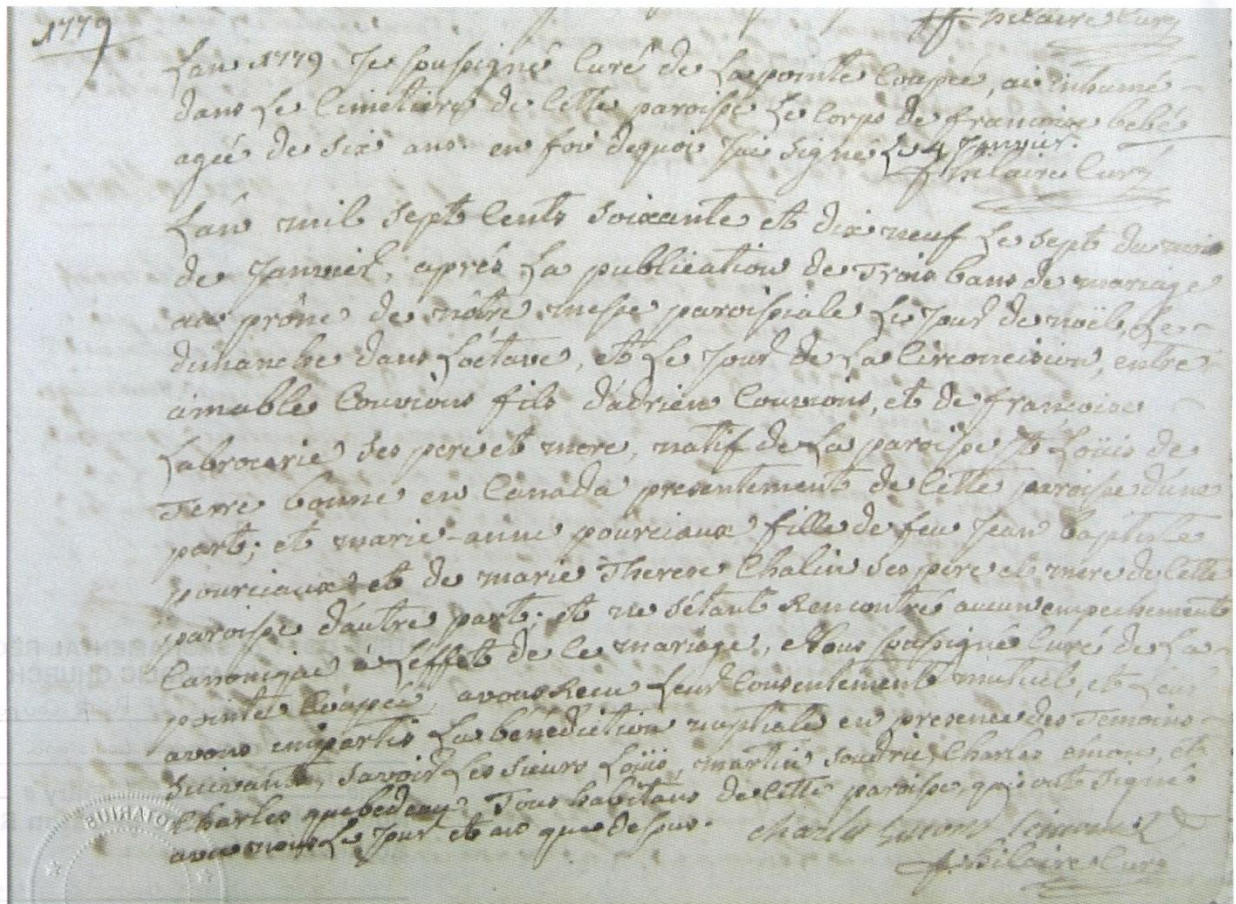 1779
f. hilaire Curé
L'an 1779 Je soussigné Curé de La pointe Coupée, ai inhumé
dans Le Cimetiere de Cette paroisse Le Corps de francoise bebé
agée de six ans. en foi dequoi J'ai signé Le 4 Janvier.
f. hilaire Curé
L'an mil sept Cents soixante et dix neuf Le sept du mois
de Janvier, aprés La publication de Trois bans de mariage
au prône de nôtre messe paroissiale Le Jour de noël, Le
dimanche dans L'octave, et Le Jour de La Circoncision, entre
amable Couvions fils d'adrien Couvions, et de françoise
Labrocerie ses pere et mere, natif de La paroisse St Loüis de
Terre bonne en Canada presentement de Cette paroisse d'une
part; et marie-anne pourciaux fille de feu Jean baptiste
pourciaux et de marie Therese Chalin ses pere et mere de Cette
paroisse d'autre part; et ne s'étant Rencontré aucun empechement
Canonique à L'effet de Ce mariage, Nous soussigné Curé de La
pointe Coupée, avons Recu Leur Consentement mutuel, et Leur
avons impartis La bénédiction nuptiale en presence des Temoins
suivants, savoir Les sieurs Loüis, martin, Charles et
Charles quebedeau Tous habitans de Cette paroisse, qui ont signé
avec nous Le Jour et an que dessus. Charles
f. hilaire Curé